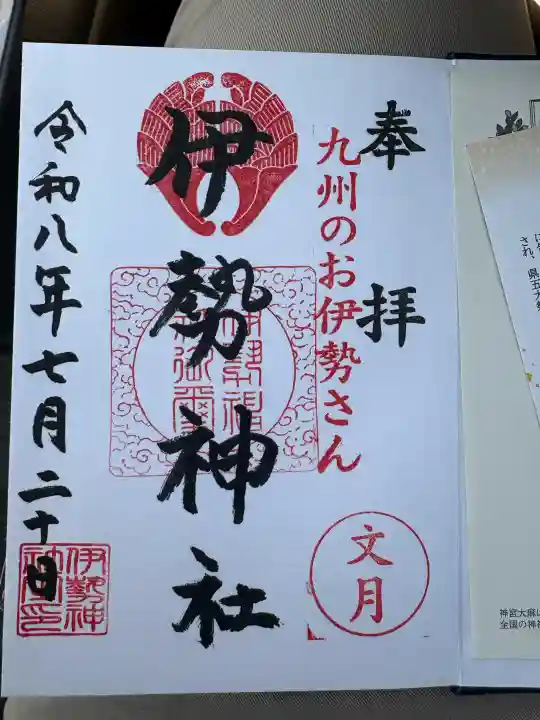 奉拝
九州のお伊勢さん
文月
伊勢神社
令和八年七月二十日
伊勢神
社印
され、県五大祭
神宮大麻
全国の神